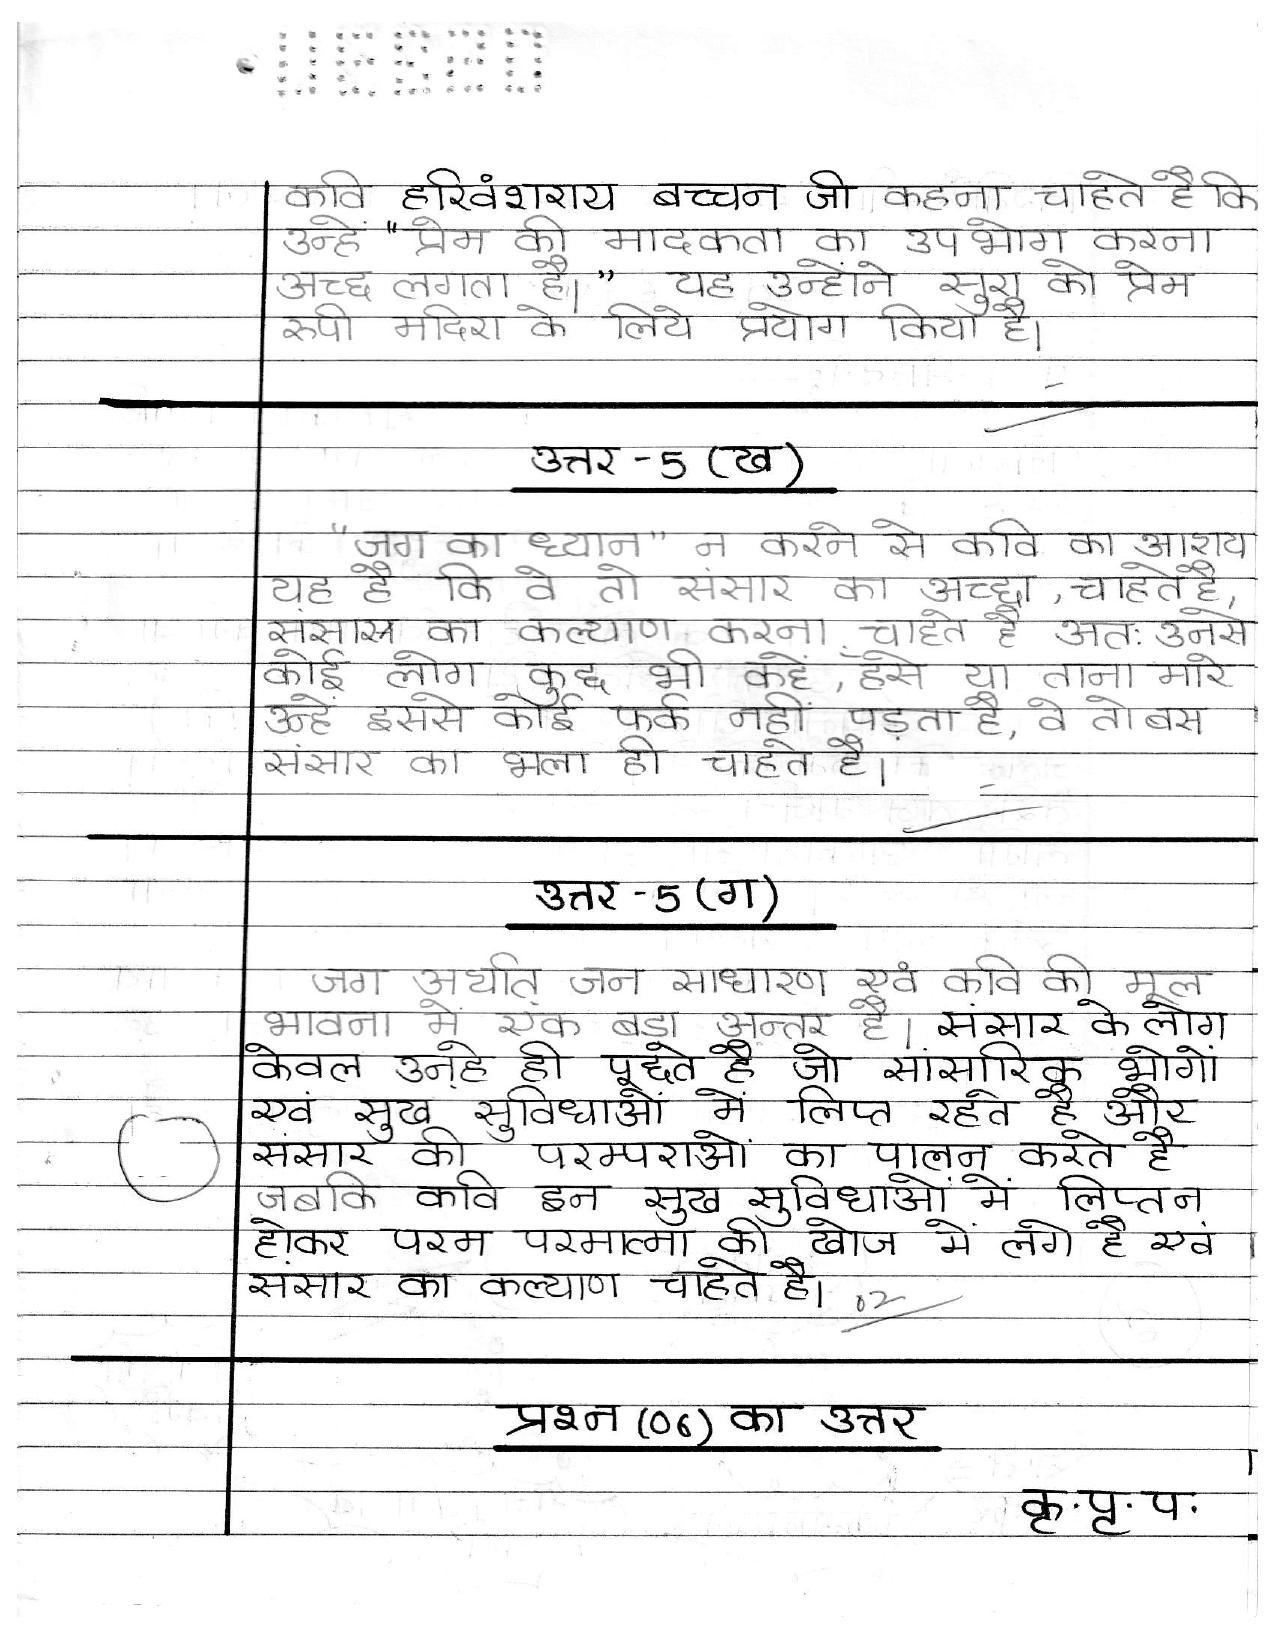 कवि हरिवंशराय बच्चन जी कहना चाहेते है कि
उन्हें "प्रेम की मादकता का उपभोग करना
अच्छ लगता है।" यह उन्होंने सुरा को प्रेम
रुपी मदिरा के लिये प्रयोग किया है।
उत्तर - 5 (ख)
"जग का ध्यान" न करने से कवि का आशय
यह है कि वे तो संसार का अच्छा, चाहेते है,
संसार का कल्याण करना चाहेते है अतः उनसे
कोई लोग कुछ भी कहें, हँसे या ताना मारे
उन्हें इससे कोई फर्क नहीं पड़ता है, वे तो बस
संसार का भला ही चाहेते है।
उत्तर - 5 (ग)
जग अर्थात् जन साधारण एवं कवि की मूल
भावना में एक बडा अन्तर है। संसार के लोग
केवल उन्हे ही पूछते है जो सांसारिक भोगों
एवं सुख सुविधाओं में लिप्त रहते है और
संसार की परम्पराओं का पालन करते है
जबकि कवि इन सुख सुविधाओं में लिप्त न
होकर परम परमात्मा की खोज में लगे है एवं
संसार का कल्याण चाहेते है।
02
प्रश्न (06) का उत्तर
कृ. पृ. प.